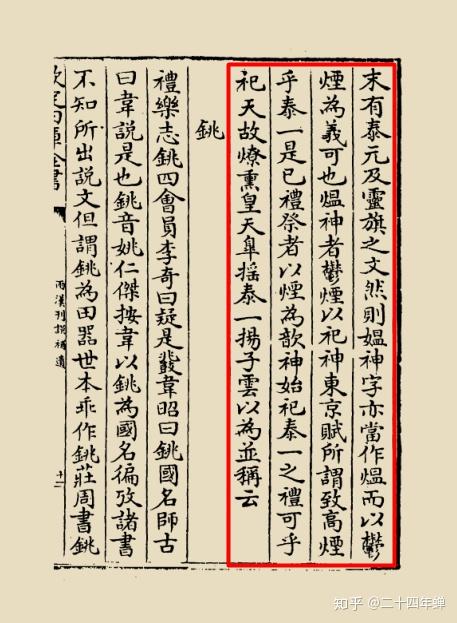 末有泰元及靈旗之文然則媪神字亦當作熅而以鬱
煙為義可也熅神者鬱煙以祀神東京賦所謂致高煙
乎泰一是已禮祭者以煙為歆神始祀泰一之禮可乎
祀天故燎熏皇天皐揺泰一揚子雲以為並稱云
銚
禮樂志銚四會員李奇曰疑是鼗韋昭曰銚國名師古
曰韋説是也銚音姚仁傑按韋以銚為國名徧攷諸書
不知所出説文但謂銚為田器世本乖作銚莊周書銚
欽定四庫全書
兩漢刋誤補遺
十二
知乎 @二十四年蝉